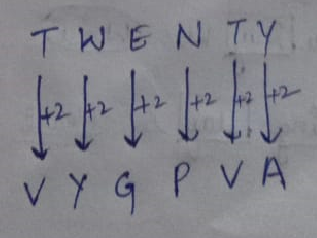 T W E N T Y
+2 +2 +2 +2 +2 +2
V Y G P V A